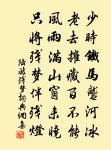 少時鐵馬蹙河冰
老去摧藏百不能
風雨滿山窗未曉
只將殘夢伴殘燈
陸游殘夢詞典網集